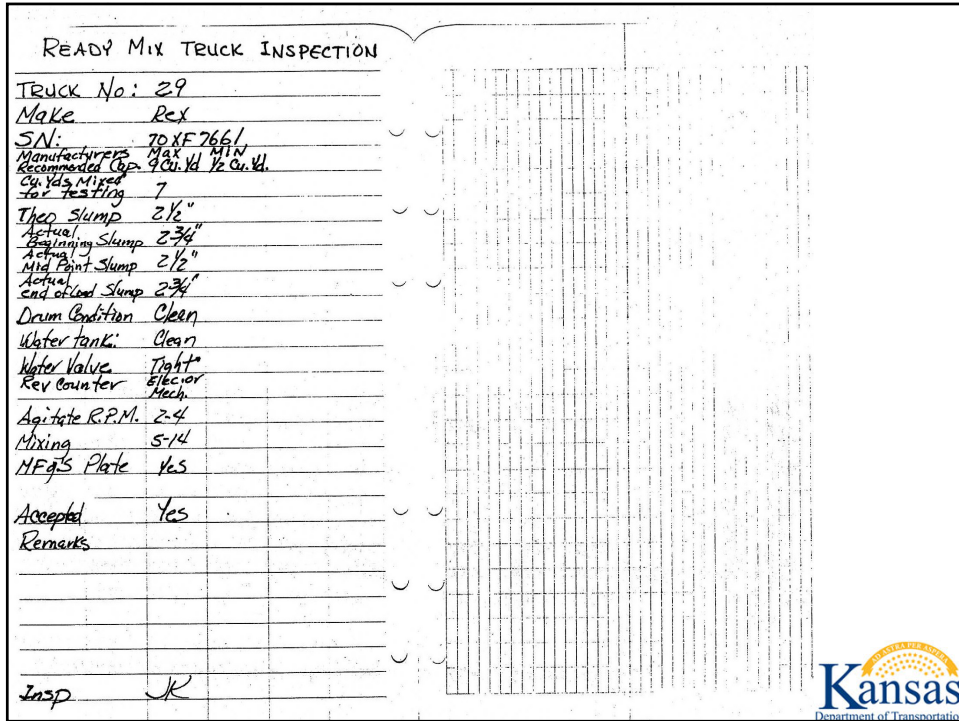 READY MIX TRUCK INSPECTION
TRUCK No: 29
Make Rex
SN: 70XF7661
Manufacturers Max MIN
Recommended Cap. 9 Cu. Yd ½ Cu. Yd.
Cu. Yds Mixed
for testing 7
Theo Slump 2½"
Actual
Beginning Slump 2¾"
Actual
Mid Point Slump 2½"
Actual
end of Load Slump 2¾"
Drum Condition Clean
Water tank: Clean
Water Valve Tight
Rev Counter Elec. or
Mech.
Agitate R.P.M. 2-4
Mixing 5-14
MFg's Plate Yes
Accepted Yes
Remarks
Insp JK
AD ASTRA PER ASPERA
Kansas
Department of Transportation